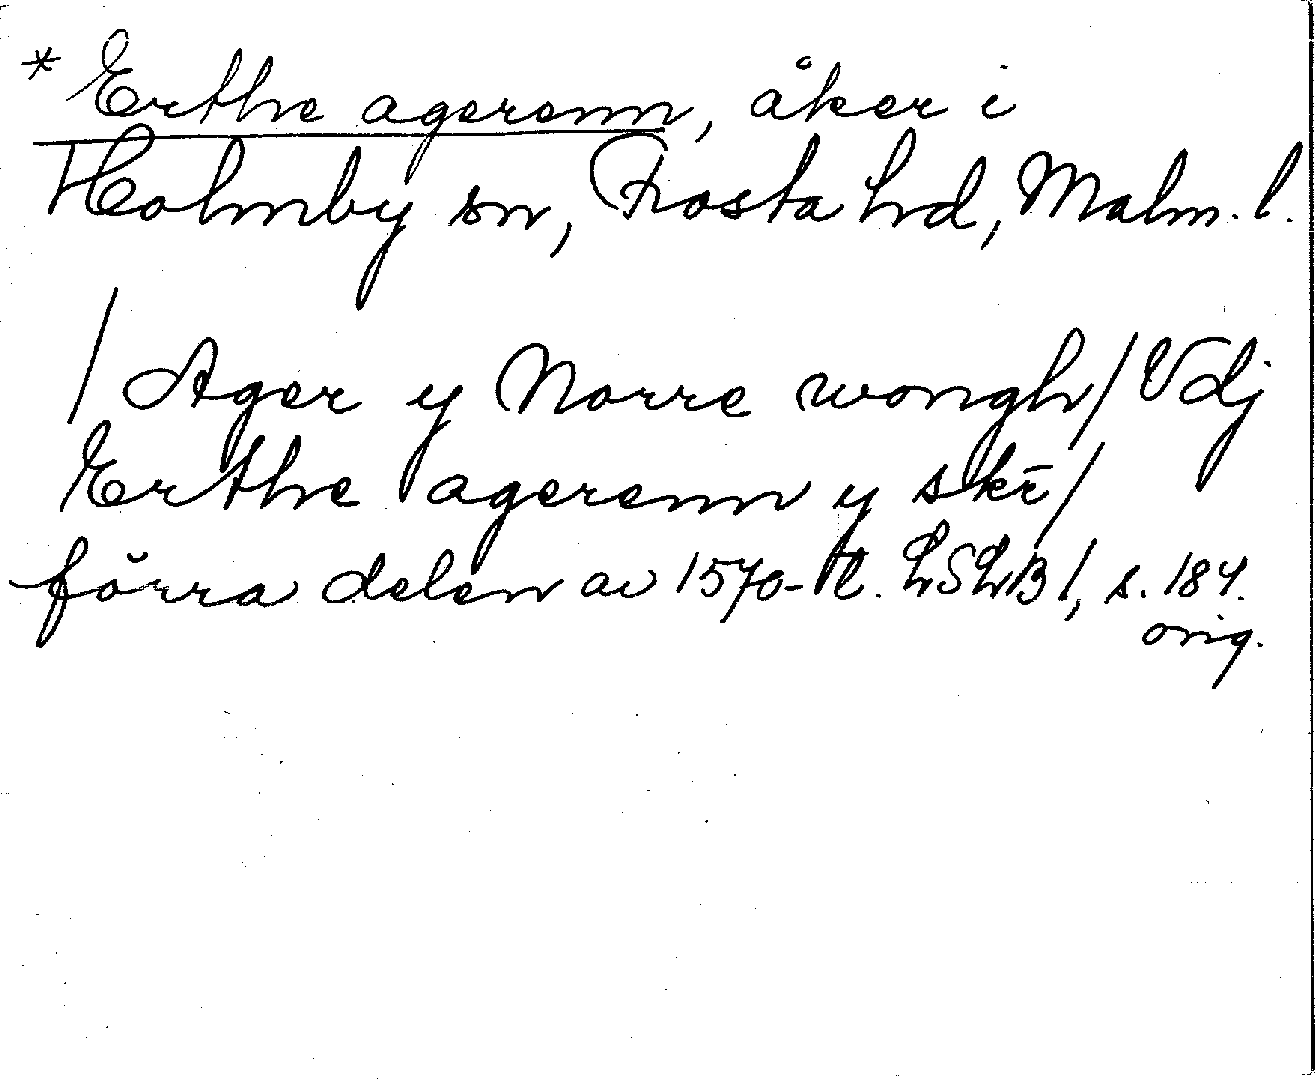 * Erthe agerenn, åker i
Holmby sn, Frosta hd, Malm. l.
/ Ager y Norre wongh / Vdj
Erthe agerenn y skē /
förra delen av 1570-t. LSLB 1, s. 184.
orig.